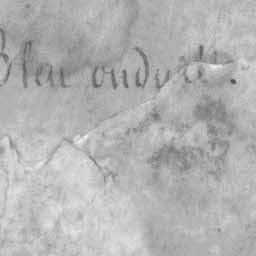 Bleu ondoyé.